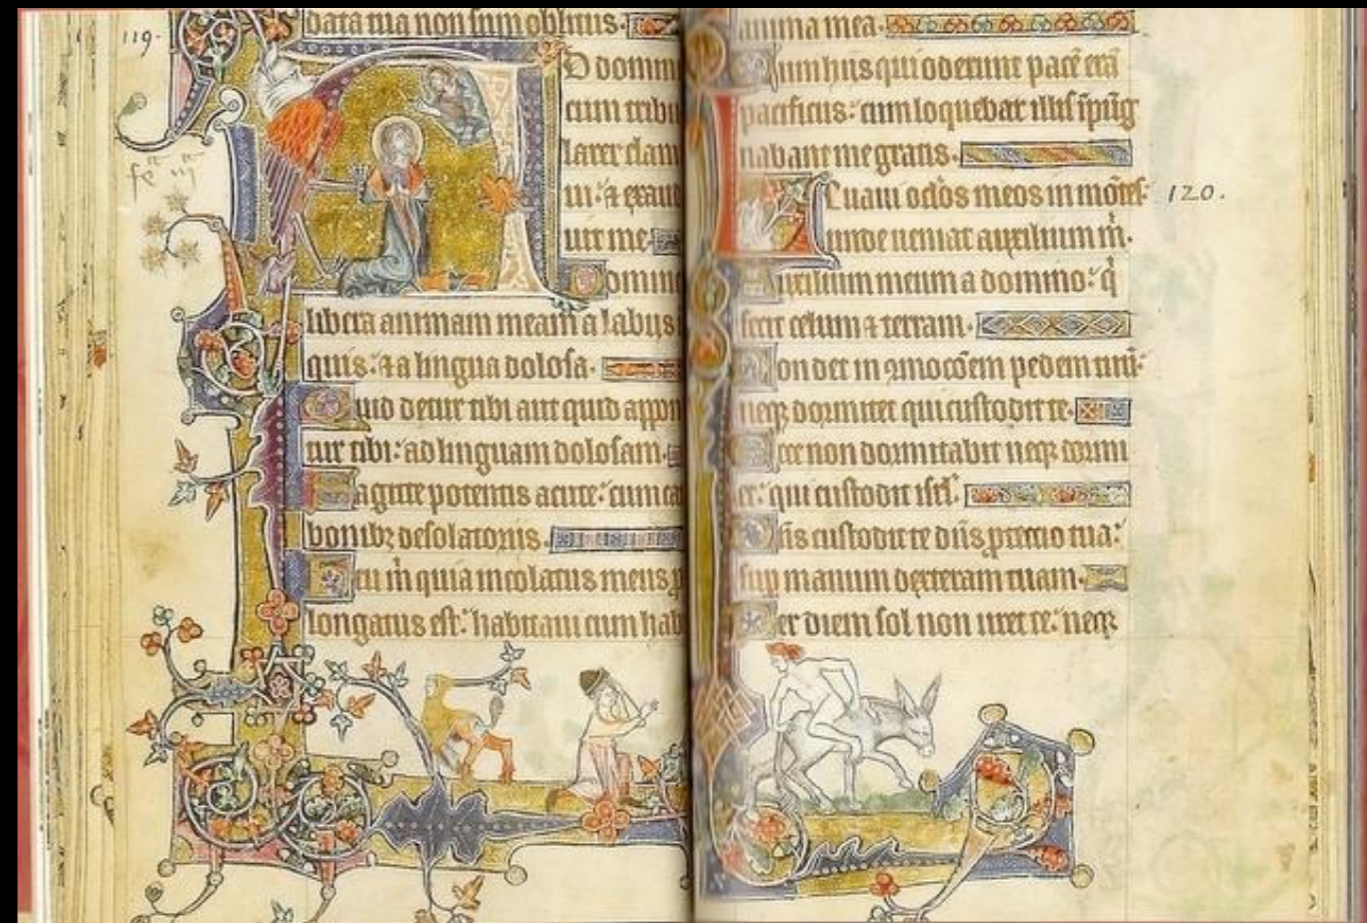 119.
data tua non sum oblitus.
D domin
cum tribu
larer clam
ui: ⁊ exaud
uit me
Domine
libera animam meam a labijs
quis: ⁊ a lingua dolosa.
Quid detur tibi aut quid appn
tur tibi: ad linguam dolosam.
Sagitte potentis acute: cum ca
bonibꝫ desolatorijs.
eu m̃ quia incolatus meus
longatus est: habitaui cum hab
anima mea.
Cum hijs qui oderunt pacē erā
pacificus: cum loquebar illis īpug
nabant me gratis.
Leuaui oclōs meos in mōtes: 120.
unde ueniat auxilium m̃.
Auxilium meum a domino: q̇
fecit celum ⁊ terram.
Non det in ꝯmocōem pedem tuū:
neqꝫ dormitet qui custodit te.
Ecce non dormitabit neqꝫ dormi
et: qui custodit isrl̄.
Dn̄s custodit te dn̄s ꝓteccio tua:
sup manum dexteram tuam.
Per diem sol non uret te: neqꝫ